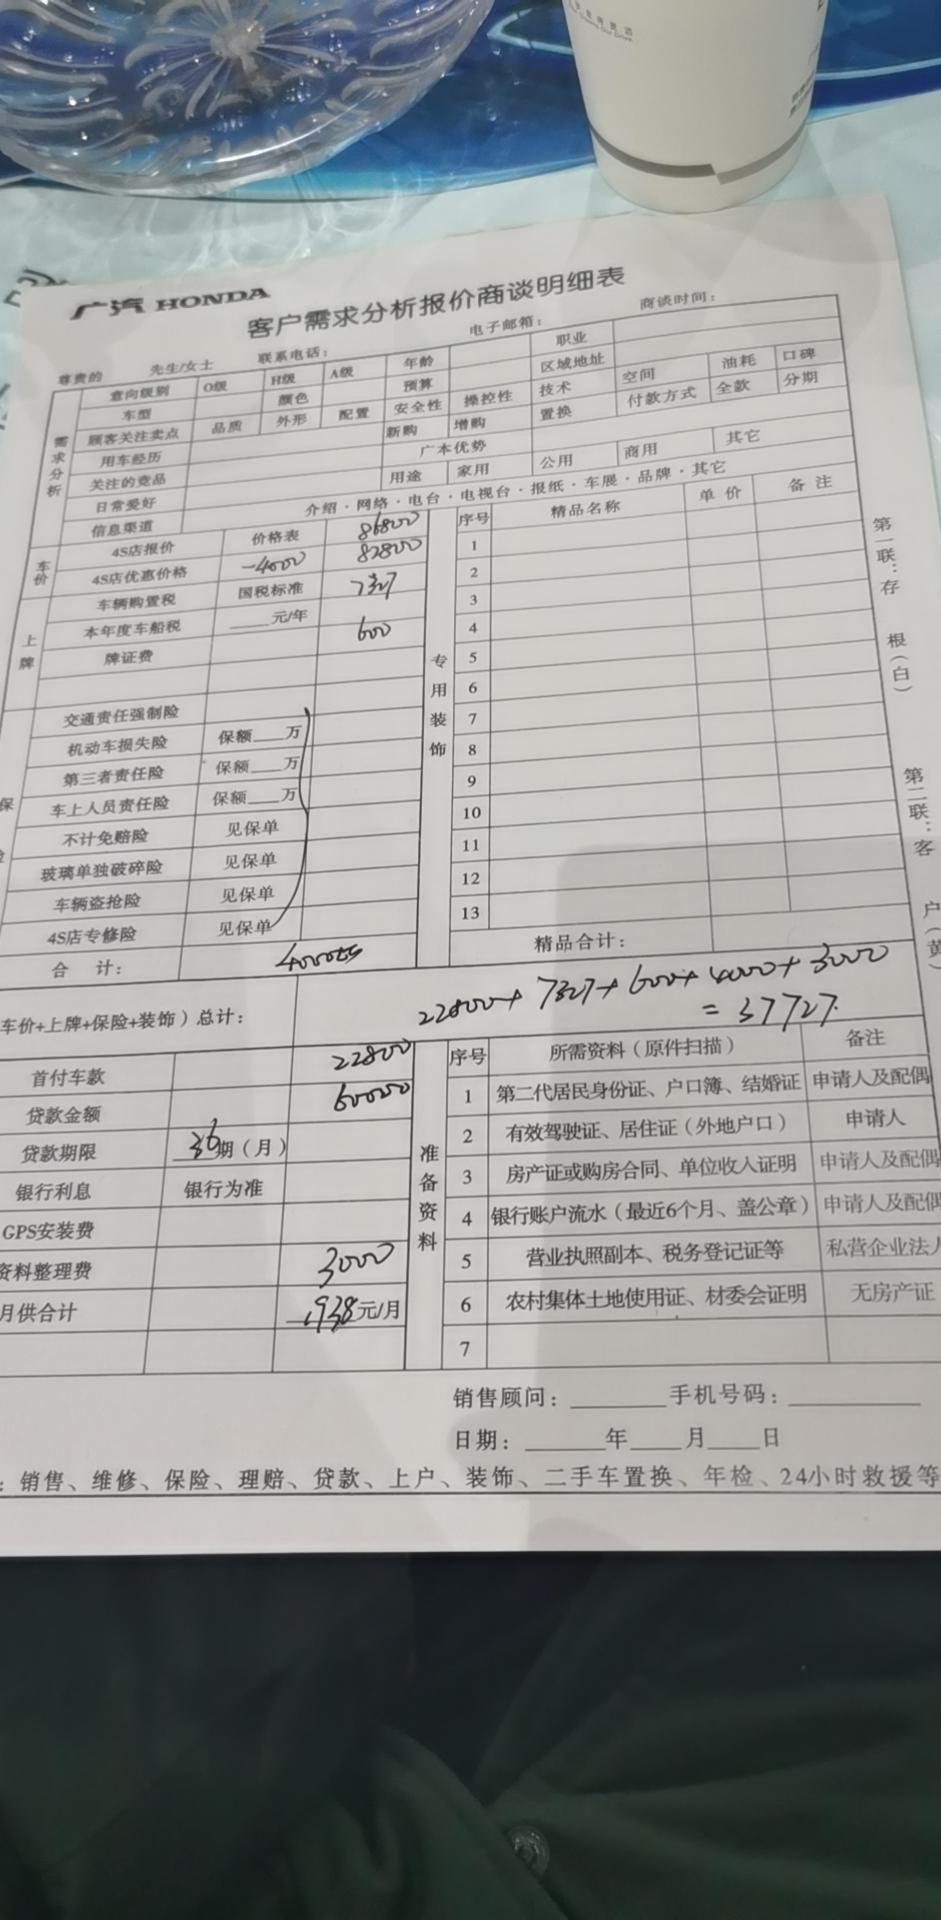 广汽 HONDA
客户需求分析报价商谈明细表
尊贵的 先生/女士 联系电话： 电子邮箱： 商谈时间：
需求分析
意向级别 O级 H级 A级 年龄 职业
车型 颜色 预算 区域地址
顾客关注卖点 品质 外形 配置 安全性 操控性 技术 空间 油耗 口碑
用车经历 新购 增购 置换 付款方式 全款 分期
关注的竞品 广本优势
日常爱好 用途 家用 公用 商用 其它
信息渠道 介绍·网络·电台·电视台·报纸·车展·品牌·其它
车价
4S店报价 价格表 86800
4S店优惠价格 -4000 82800
上牌
车辆购置税 国税标准 7327
本年度车船税 ____元/年
牌证费 600
保
交通责任强制险
机动车损失险 保额___万
第三者责任险 保额___万
车上人员责任险 保额___万
不计免赔险 见保单
玻璃单独破碎险 见保单
车辆盗抢险 见保单
4S店专修险 见保单
合 计：
专用装饰
序号 精品名称 单价 备注
1
2
3
4
5
6
7
8
9
10
11
12
13
精品合计：
车价+上牌+保险+装饰）总计： 22800+7327+600+4000+3000
=37727.
首付车款 22800
贷款金额 60000
贷款期限 36期（月）
银行利息 银行为准
GPS安装费
资料整理费 3000
月供合计 1938元/月
准备资料
序号 所需资料（原件扫描） 备注
1 第二代居民身份证、户口簿、结婚证 申请人及配偶
2 有效驾驶证、居住证（外地户口） 申请人
3 房产证或购房合同、单位收入证明 申请人及配偶
4 银行账户流水（最近6个月、盖公章） 申请人及配偶
5 营业执照副本、税务登记证等 私营企业法人
6 农村集体土地使用证、村委会证明 无房产证
7
销售顾问：______ 手机号码：________
日期：_____年___月___日
：销售、维修、保险、理赔、贷款、上户、装饰、二手车置换、年检、24小时救援等
第一联：存根（白） 第二联：客户（黄）